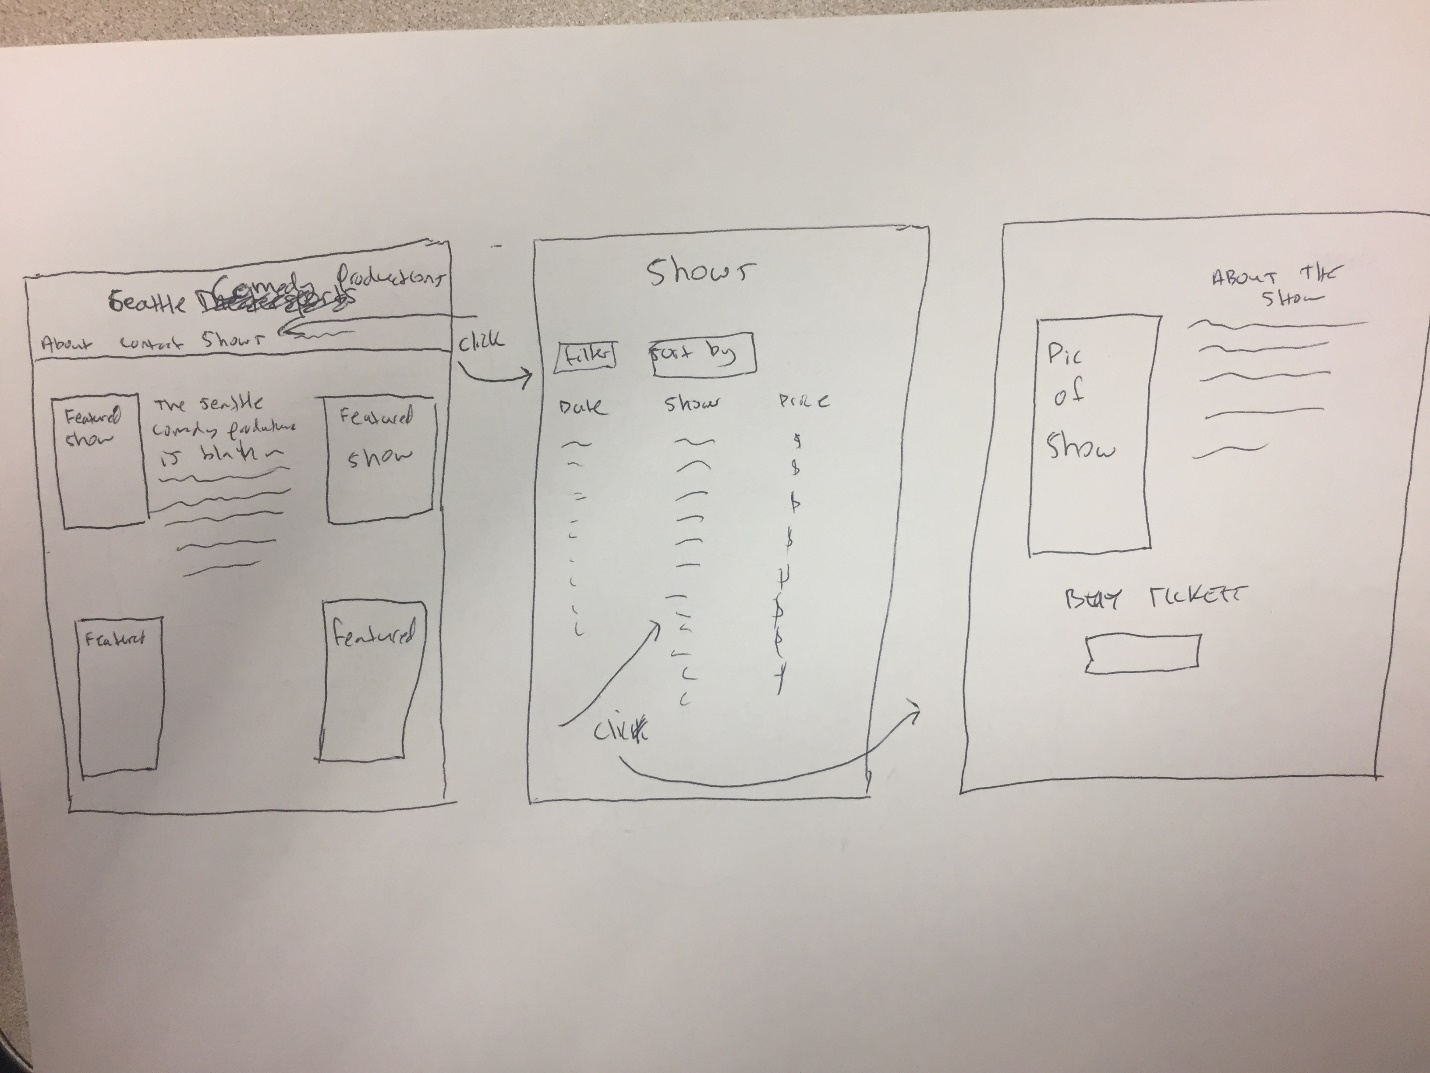 Seattle Comedy Productions
About Contact Shows
Featured
show
The Seattle
Comedy
is
Featured
show
Featured
Featured
click
Shows
Filter
Sort by
Date Show Price
$
$
$
$
$
$
$
$
click
ABOUT THE
SHOW
Pic
of
Show
BUY TICKETS